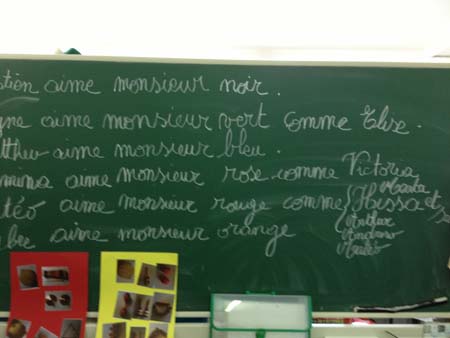 tien aime monsieur noir.
gne aime monsieur vert comme Elise.
tthew aime monsieur bleu.
mina aime monsieur rose comme Victoria
téo aime monsieur rouge comme Hissa et
bee aime monsieur orange
Arthur